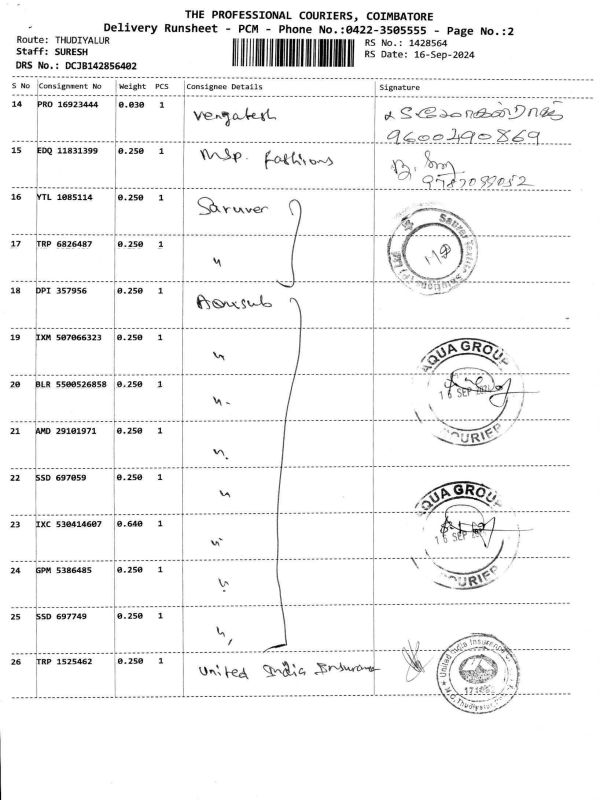 THE PROFESSIONAL COURIERS, COIMBATORE
Delivery Runsheet - PCM - Phone No.:0422-3505555 - Page No.:2
Route: THUDIYALUR
Staff: SURESH
DRS No.: DCJB142856402
RS No.: 1428564
RS Date: 16-Sep-2024
S No Consignment No Weight PCS Consignee Details Signature
14 PRO 16923444 0.030 1 Vengatesh
9600490869
15 EDQ 11831399 0.250 1 Msp. fashions
16 YTL 1085114 0.250 1 Saruver
17 TRP 6826487 0.250 1 "
18 DPI 357956 0.250 1
19 IXM 507066323 0.250 1 "
AQUA GROUP
20 BLR 5500526858 0.250 1 "
16 SEP
21 AMD 29101971 0.250 1 "
COURIER
22 SSD 697059 0.250 1 "
AQUA GROUP
23 IXC 530414607 0.640 1 "
16 SEP
24 GPM 5386485 0.250 1 "
COURIER
25 SSD 697749 0.250 1 "
26 TRP 1525462 0.250 1 United India Insurance
United India Insurance Co